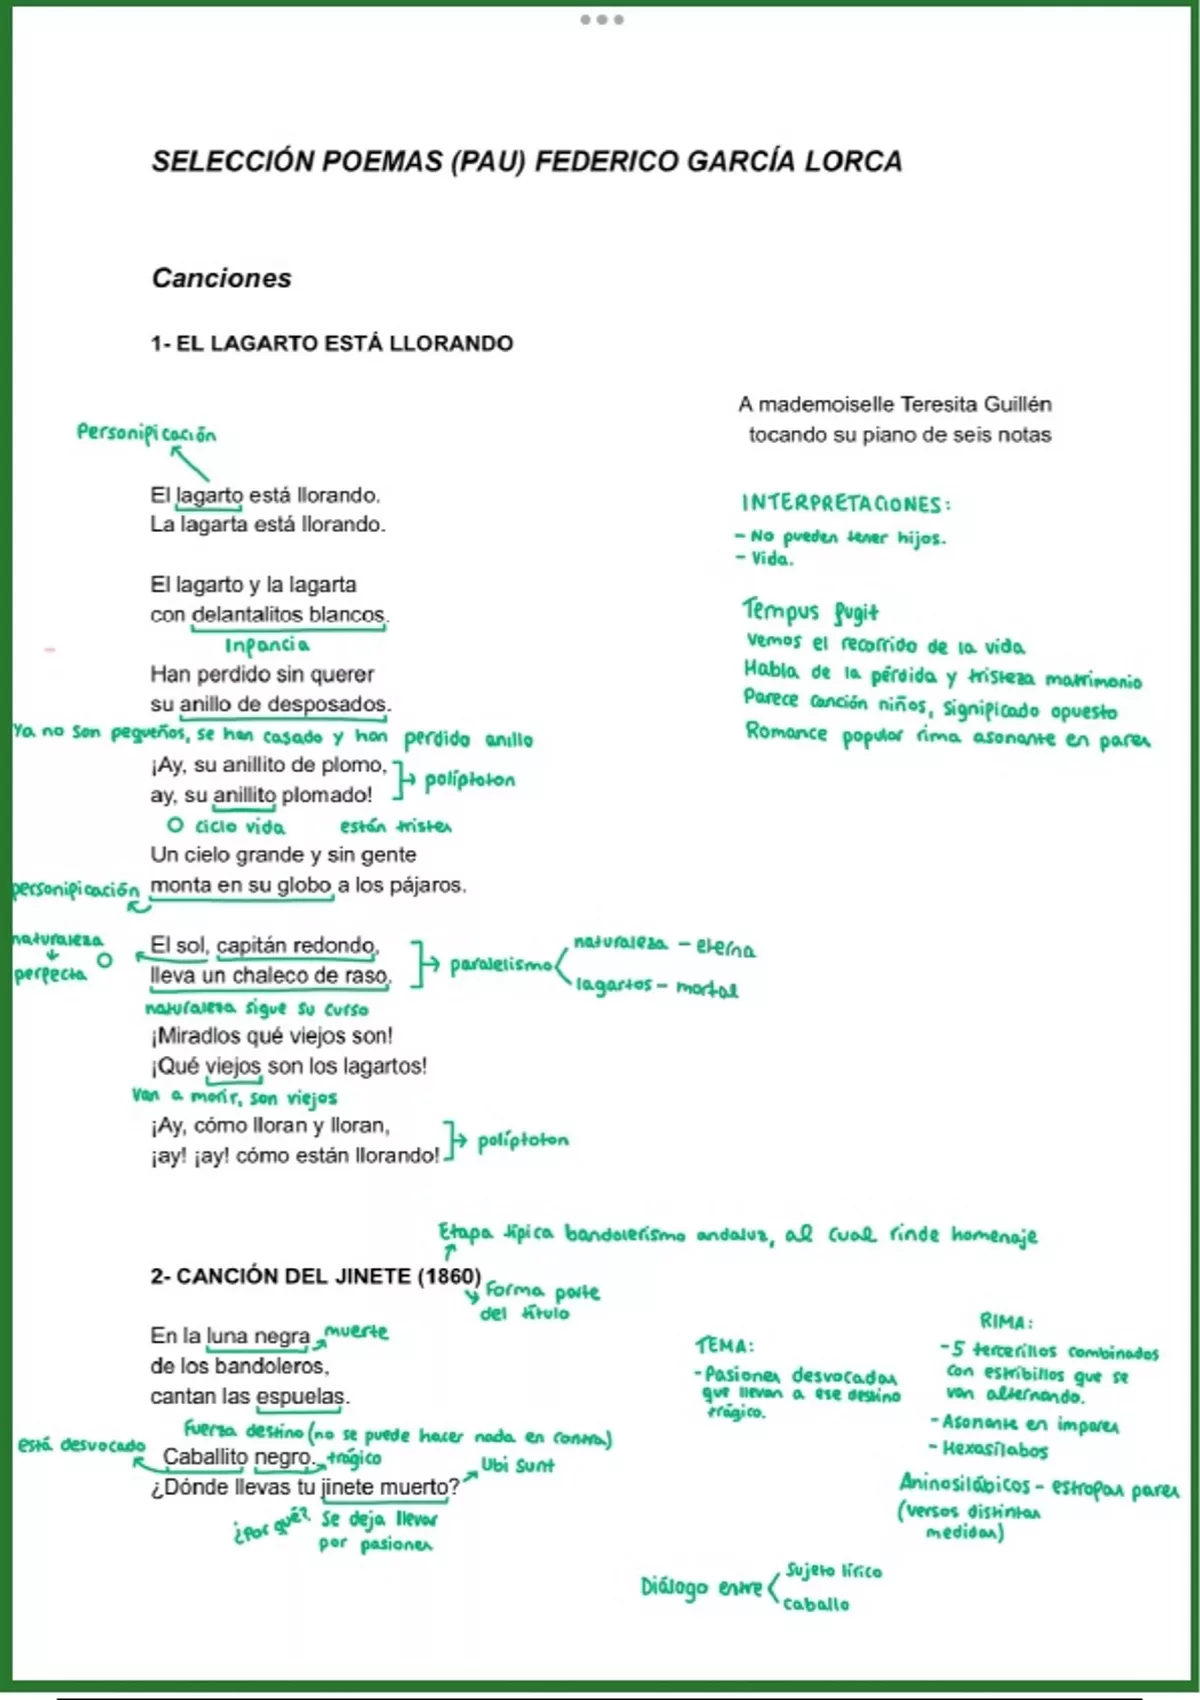 SELECCIÓN POEMAS (PAU) FEDERICO GARCÍA LORCA
Canciones
1- EL LAGARTO ESTÁ LLORANDO
A mademoiselle Teresita Guillén
tocando su piano de seis notas
Personificación
El lagarto está llorando.
La lagarta está llorando.
INTERPRETACIONES:
- No pueden tener hijos.
- Vida.
El lagarto y la lagarta
con delantalitos blancos.
Infancia
Tempus fugit
Vemos el recorrido de la vida
Habla de la pérdida y tristeza matrimonio
Parece canción niños, significado opuesto
Romance popular rima asonante en pares
Han perdido sin querer
su anillo de desposados.
Ya no son pequeños, se han casado y han perdido anillo
¡Ay, su anillito de plomo,
ay, su anillito plomado!
políptoton
O ciclo vida están tristes
Un cielo grande y sin gente
monta en su globo a los pájaros.
personificación
naturaleza
perfecta O
El sol, capitán redondo,
lleva un chaleco de raso.
paralelismo
naturaleza - eterna
lagartos - mortal
naturaleza sigue su curso
¡Miradlos qué viejos son!
¡Qué viejos son los lagartos!
Van a morir, son viejos
¡Ay, cómo lloran y lloran,
¡ay! ¡ay! cómo están llorando!
políptoton
Etapa típica bandolerismo andaluz, al cual rinde homenaje
2- CANCIÓN DEL JINETE (1860)
Forma parte
del título
En la luna negra
muerte
de los bandoleros,
cantan las espuelas.
Fuerza destino (no se puede hacer nada en contra)
está desvocado
Caballito negro.
trágico
¿Dónde llevas tu jinete muerto?
Ubi Sunt
¿Por qué? Se deja llevar
por pasiones
TEMA:
- Pasiones desvocadas
que llevan a ese destino
trágico.
RIMA:
- 5 tercerillos combinados
con estribillos que se
van alternando.
- Asonante en impares
- Hexasílabos
Aninosilábicos - estrofas pares
(versos distintas
medidas)
Diálogo entre
Sujeto lírico
caballo